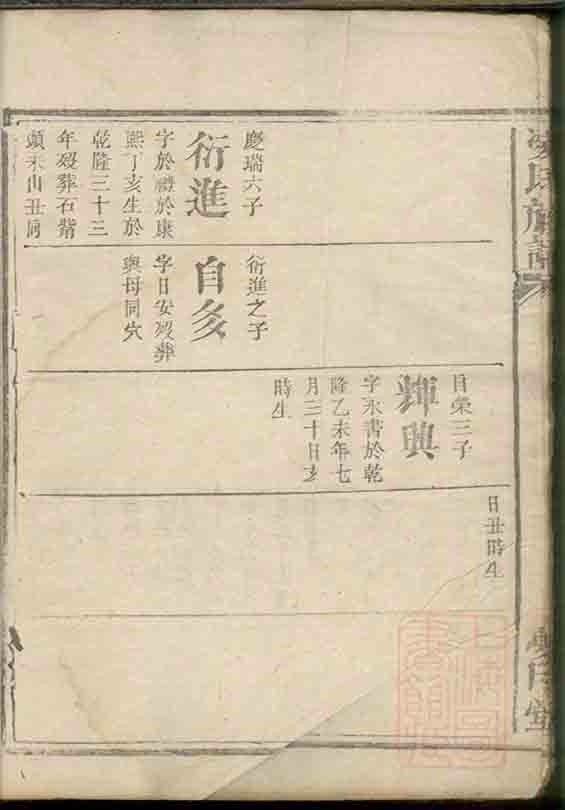 族譜
慶瑞六子
衍進
字於禮於康
熙丁亥生於
乾隆三十三
年歿葬石
頭禾山丑向
衍進之子
自多
字日安歿葬
與母同穴
自榮三子
輝興
字永書於乾
隆乙未年七
月三十日亥
時生
日丑時生
堂